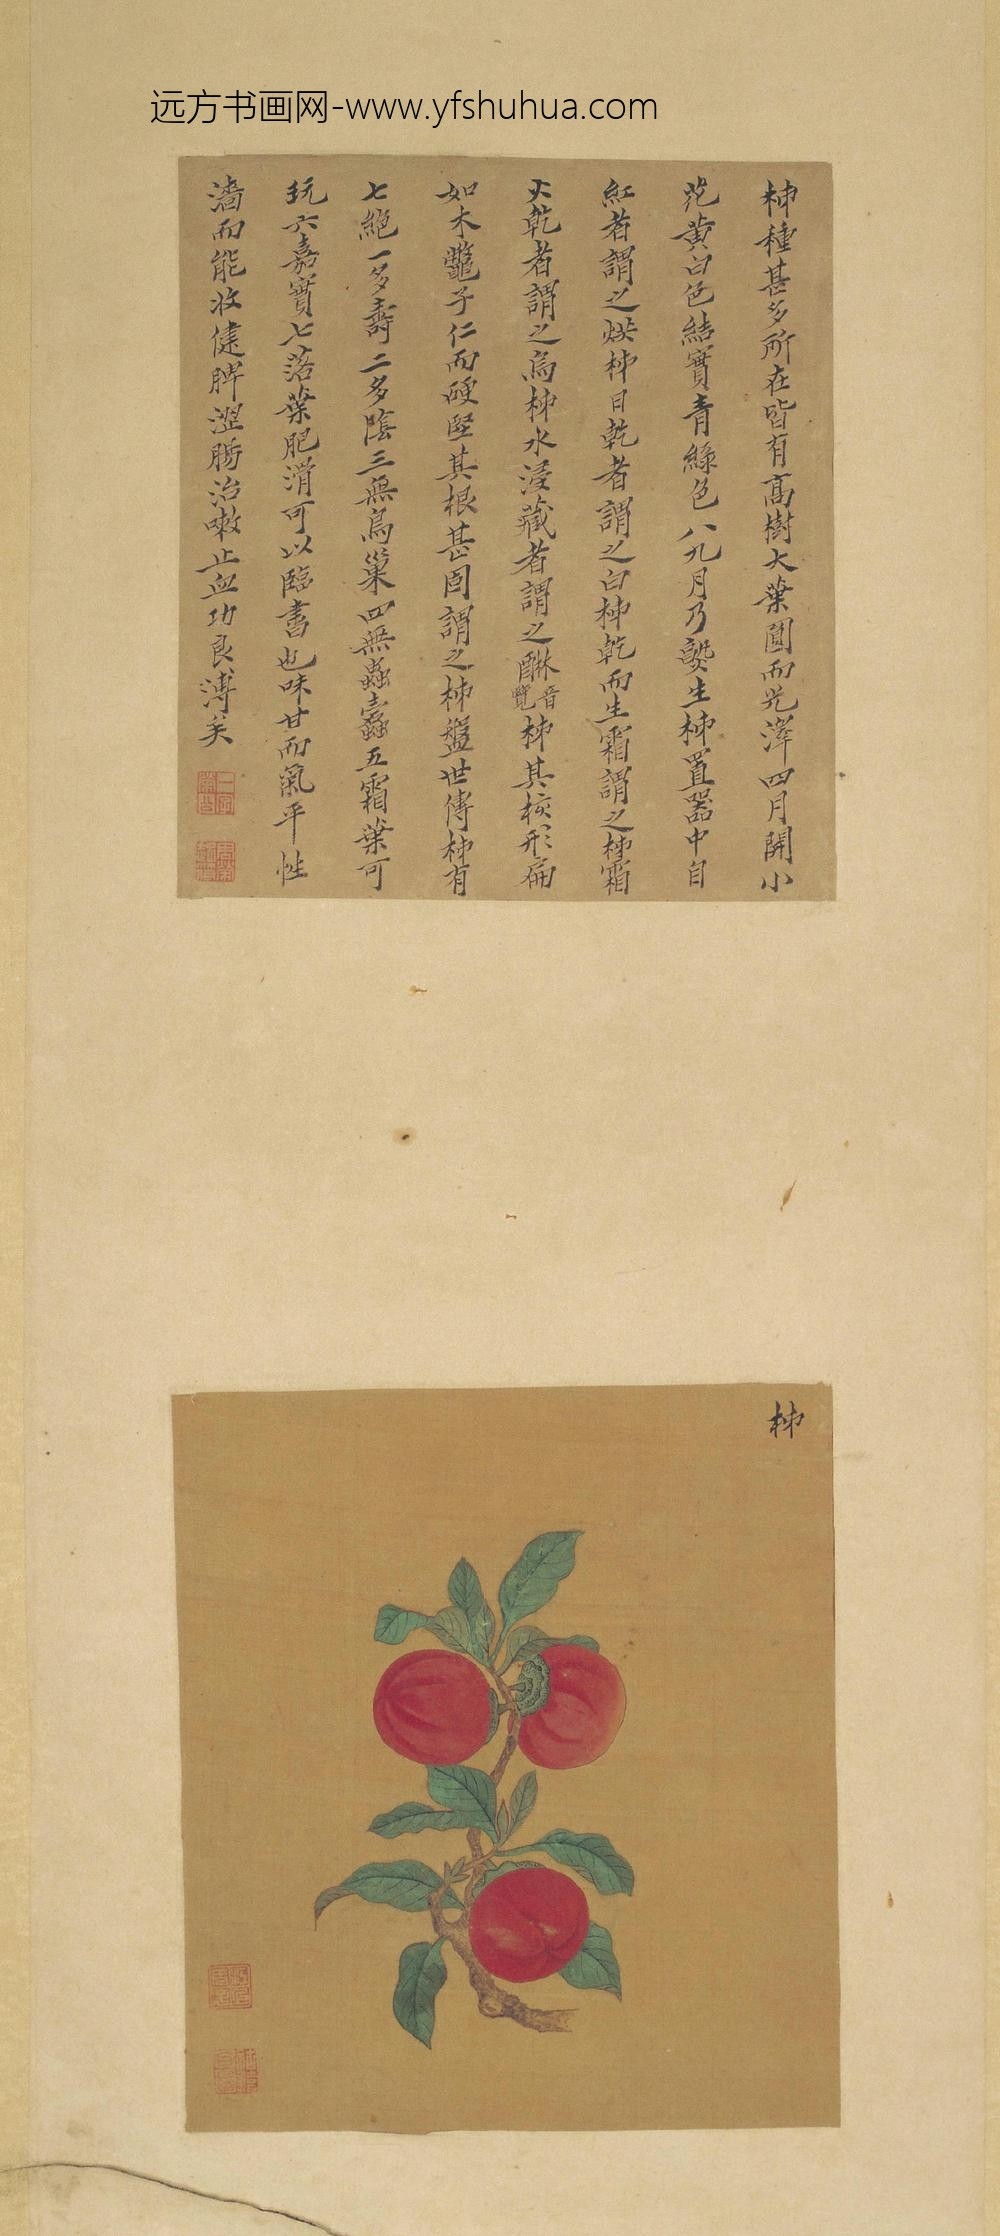 远方书画网-www.yfshuhua.com
柹種甚多所在皆有高樹大葉圓而光澤四月開小
花黄白色結實青綠色八九月乃熟生柹置器中自
紅者謂之烘柹日乾者謂之白柹乾而生霜謂之柹霜
火乾者謂之烏柹水浸藏者謂之醂音覽柹其核形扁
如木鼈子仁而硬堅其根甚固謂之柹盤世傳柹有
七絕一多壽二多陰三無鳥巢四無蟲蠹五霜葉可
玩六嘉實七落葉肥滑可以臨書也味甘而氣平性
濇而能收健脾澀腸治嗽止血功良溥矣
柹